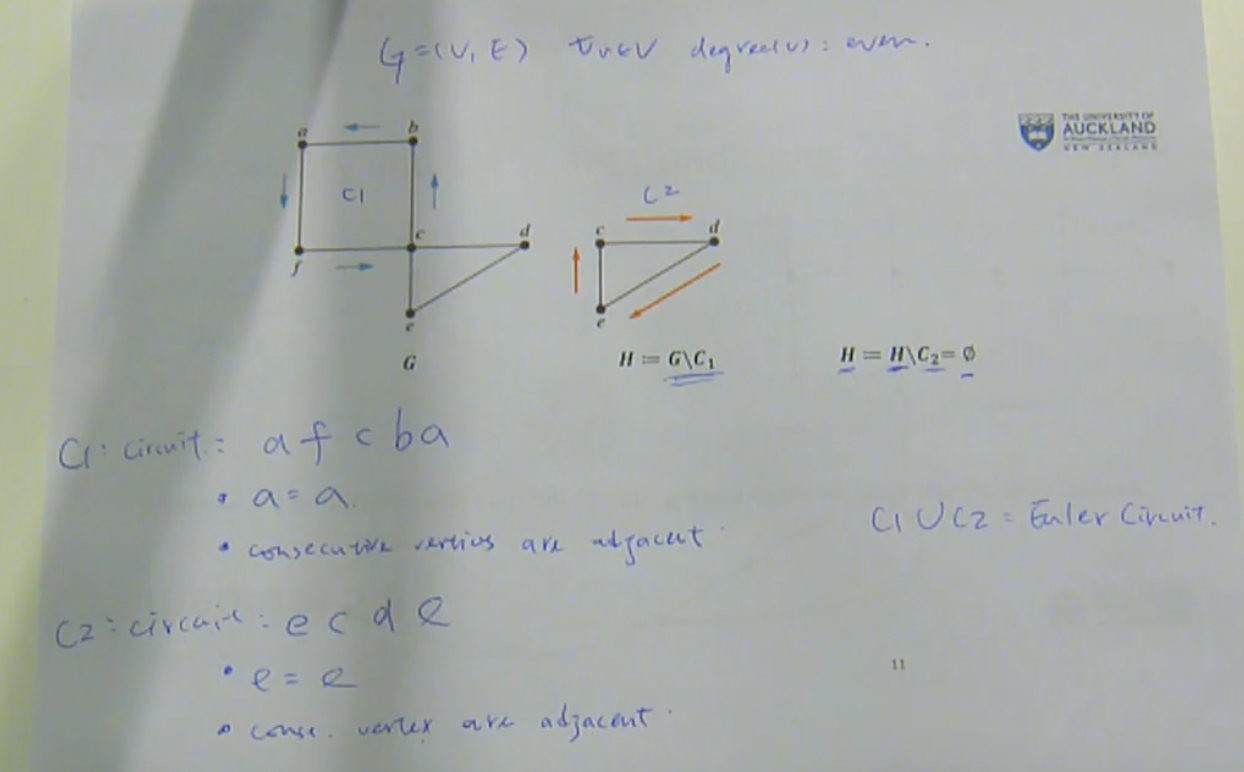 G=(V, E) ∀v∈V degree(v): even.
THE UNIVERSITY OF
AUCKLAND
NEW ZEALAND
a b
C1
c d
f
e
G
C2
c d
e
H := G\C₁
H = H\C₂= ∅
C1: circuit: a f c b a
• a = a.
• consecutive verties are adjacent.
C1 ∪ C2 = Euler Circuit.
C2: circuit: e c d e
• e = e
• conse. vertex are adjacent.
11